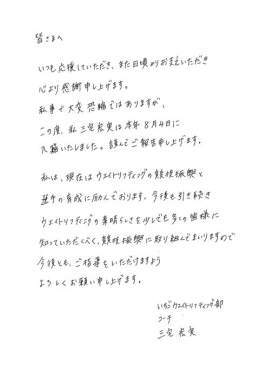 皆さまへ
いつも応援していただき、また日頃よりお支えいただき
心より感謝申し上げます。
私事で大変恐縮ではありますが、
この度、私 三宅宏実は本年8月4日に
入籍いたしました。謹んでご報告申し上げます。
私は、現在はウエイトリフティングの競技振興と
若手の育成に励んでおります。今後も引き続き
ウエイトリフティングの素晴らしさを少しでも多くの皆様に
知っていただくべく、競技振興に取り組んでまいりますので
今後とも、ご指導をいただけますよう
よろしくお願い申し上げます。
いちごウエイトリフティング部
コーチ
三宅宏実